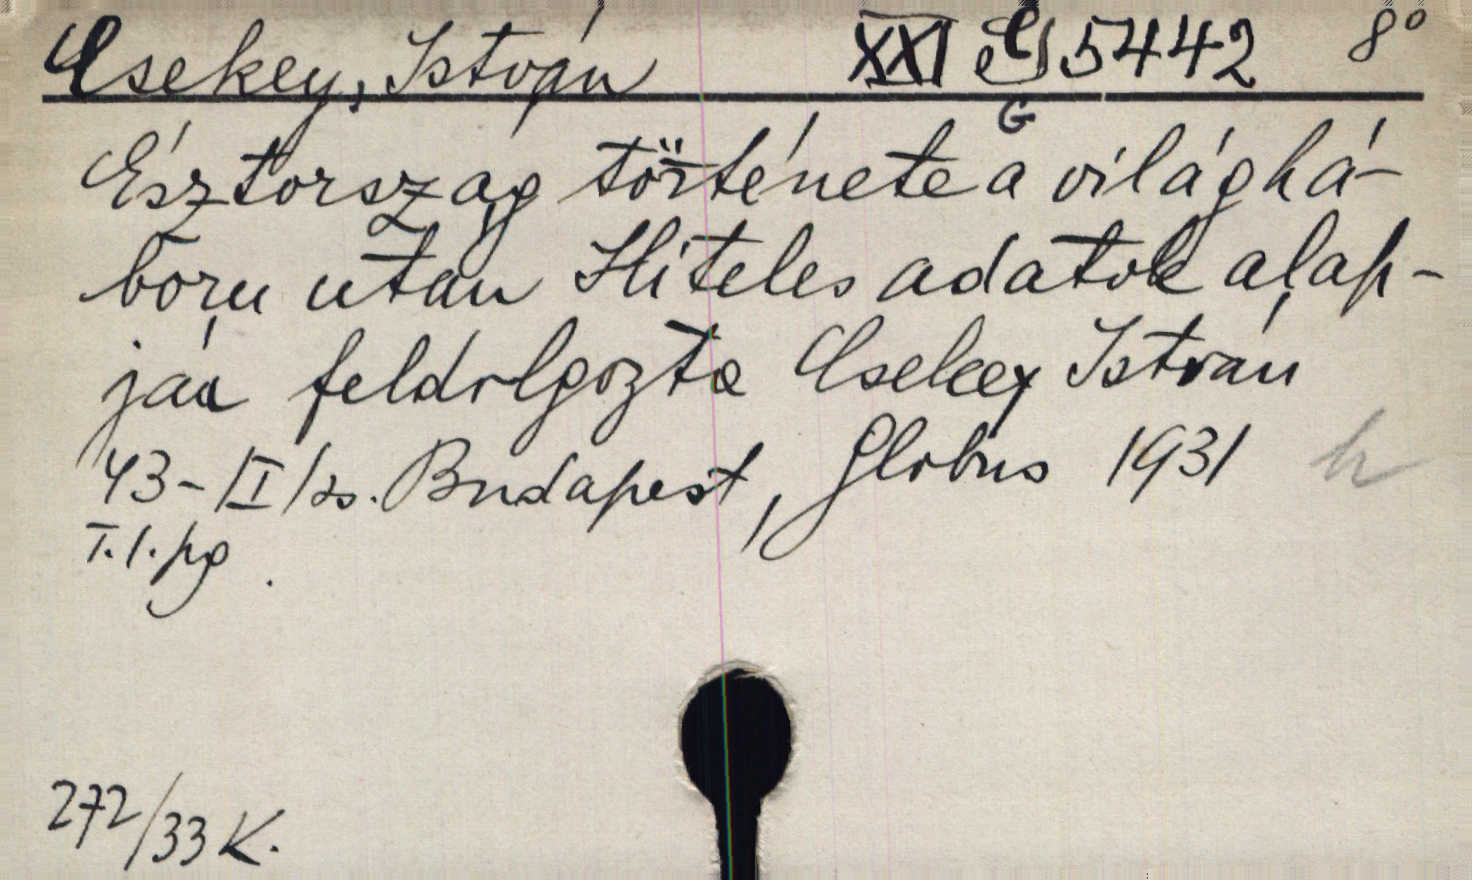 Csekey, István XXI 5442 8°
G
Észtország története a világhá-
boru után Hiteles adatok alap-
ján feldolgozta Csekey István
Budapest, Globus 1931 h
T. 1. pg.
272/33 K.